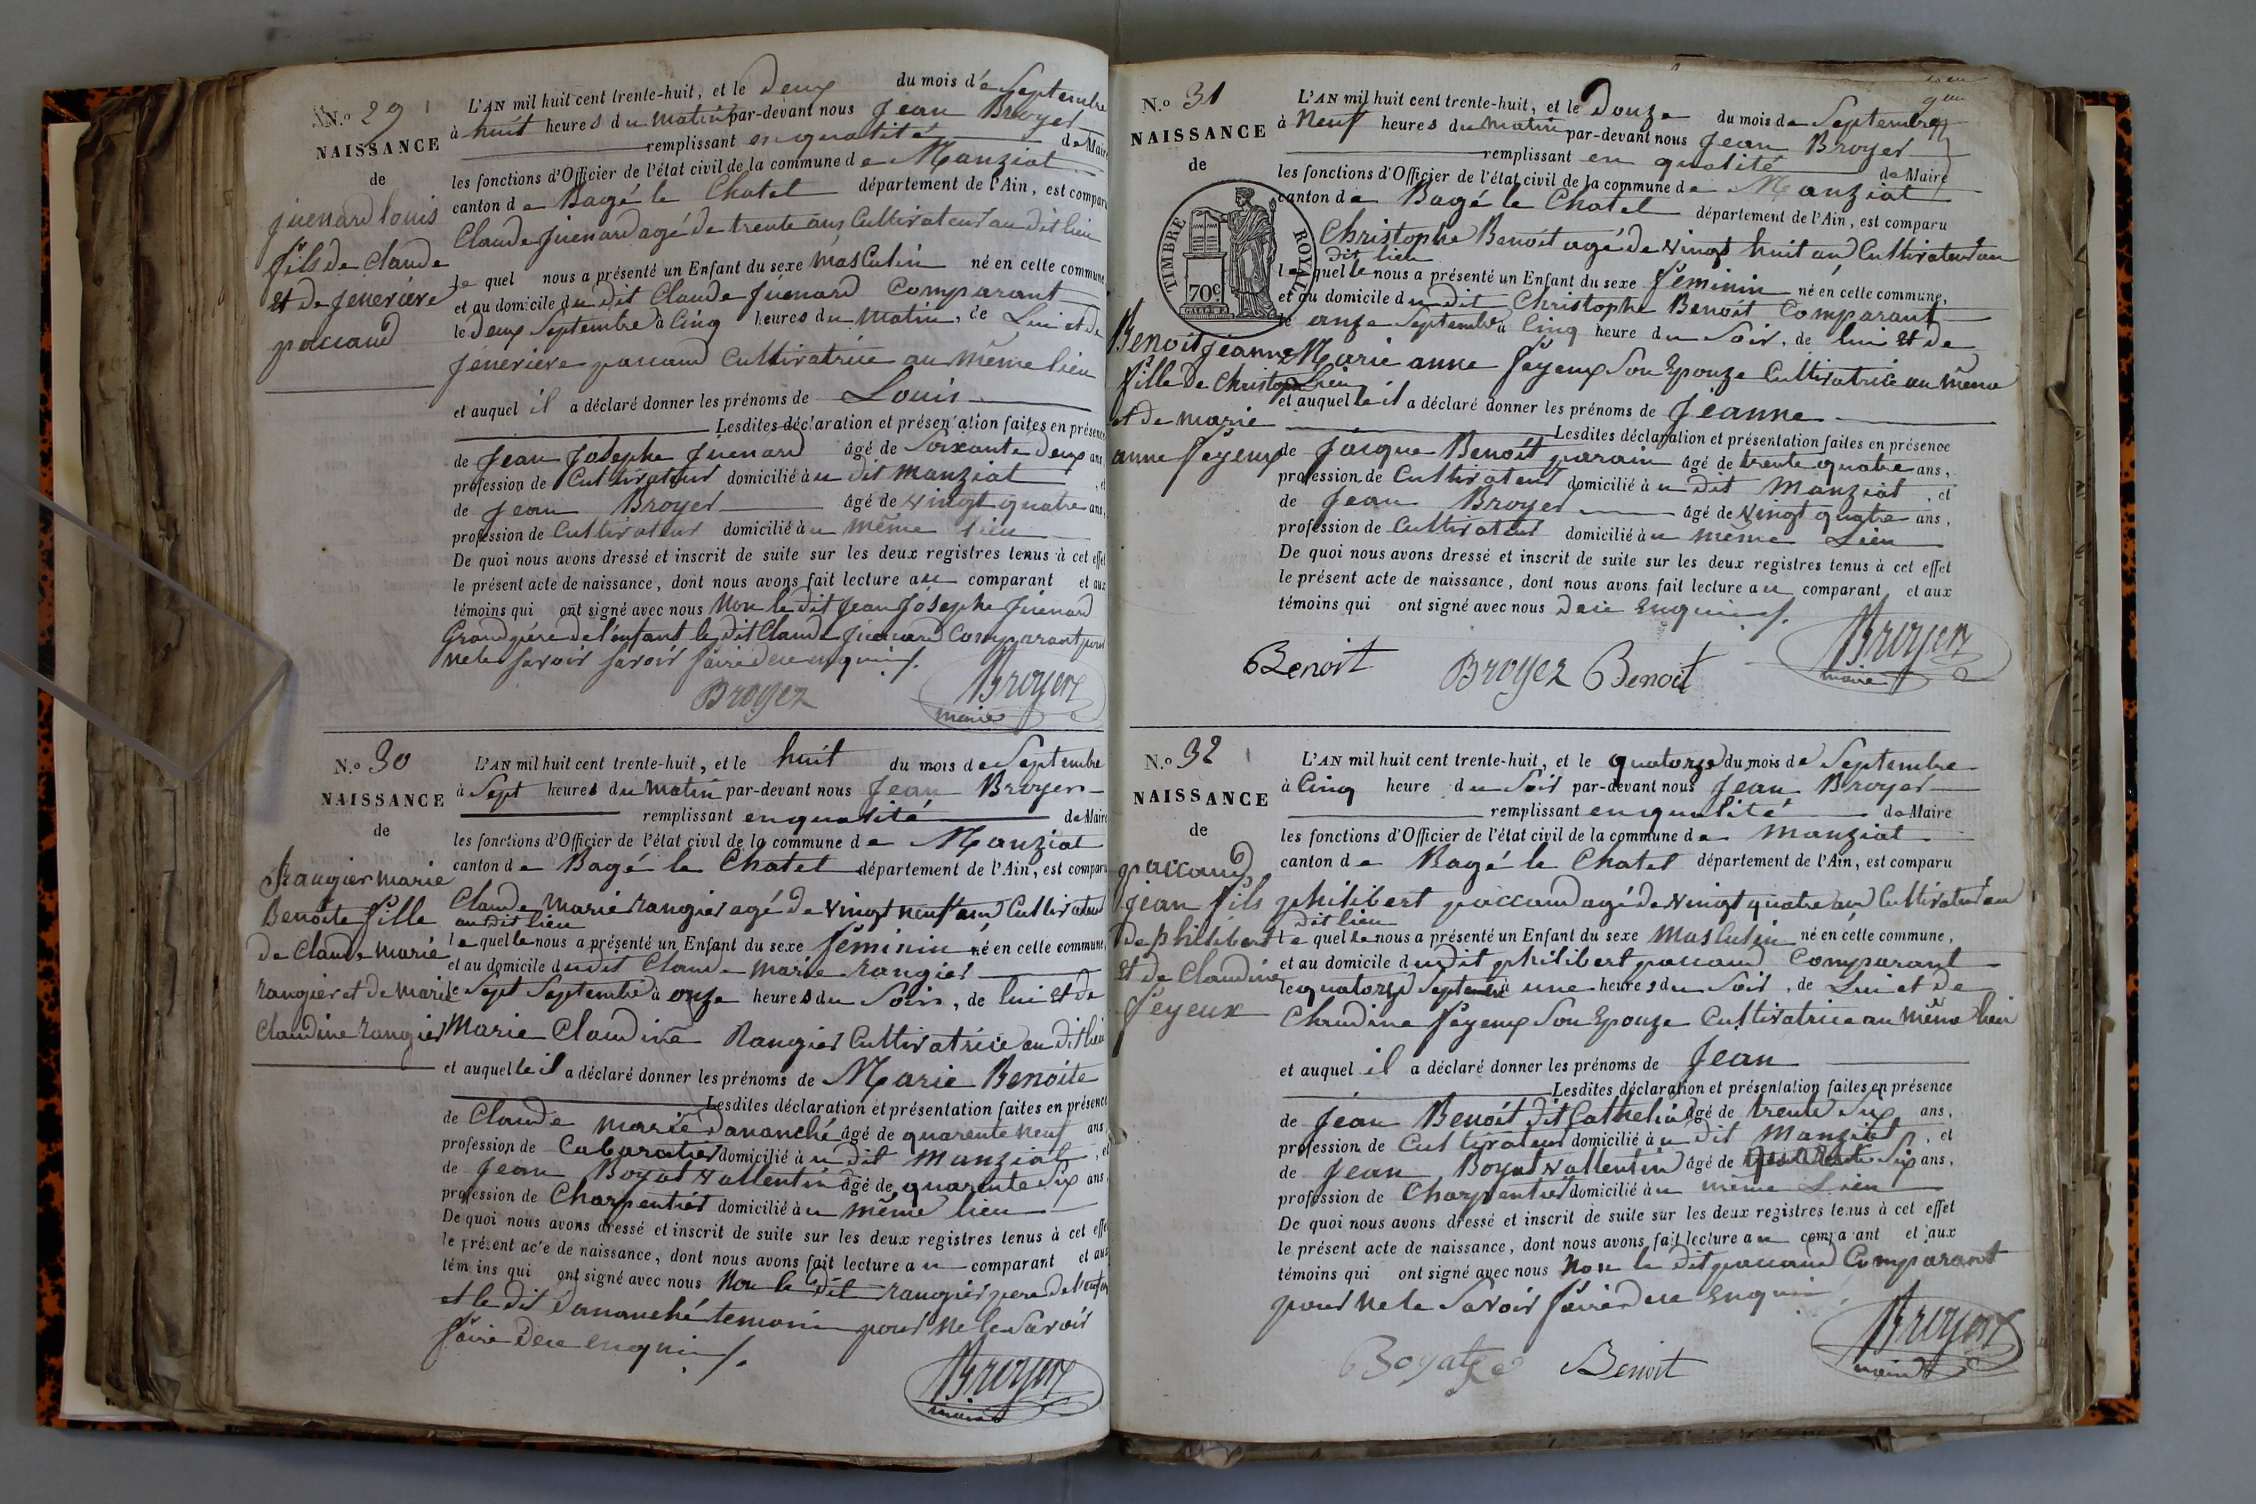 N.º 29
NAISSANCE
de
juenard louis
fils de Claude
et de jeneviève
paccaud
L'AN mil huit cent trente-huit, et le Deux du mois de Septembre
à huit heures du matin par-devant nous Jean Broyer
remplissant en qualité de Maire
les fonctions d'Officier de l'état civil de la commune de Manziat
canton de Bagé le Chatel département de l'Ain, est comparu
Claude Juenard agé de trente ans Cultivateur au dit lieu
le quel nous a présenté un Enfant du sexe masculin né en cette commune
et au domicile du dit Claude Juenard Comparant
le deux Septembre à Cinq heures du Matin, de Lui et de
jeneviève paccaud Cultivatrice au même lieu
et auquel il a déclaré donner les prénoms de Louis
Lesdites déclaration et présentation faites en présence
de Jean Josephe Juenard âgé de Soixante Deux ans,
profession de Cultivateur domicilié au dit Manziat, et
de Jean Broyer âgé de vingt quatre ans,
profession de Cultivateur domicilié au même lieu
De quoi nous avons dressé et inscrit de suite sur les deux registres tenus à cet effet
le présent acte de naissance, dont nous avons fait lecture au comparant et aux
témoins qui ont signé avec nous Non le dit Jean Josephe Juenard
Grand père de l'enfant le dit Claude Juenard Comparant pour
ne le savoir savoir faire de ce enquis
Broyer Broyer
maire
N.º 30
NAISSANCE
de
Rangier marie
Benoite fille
de Claude marie
rangier et de marie
Claudine rangier
L'AN mil huit cent trente-huit, et le huit du mois de Septembre
à Sept heures du matin par-devant nous Jean Broyer
remplissant en qualité de Maire
les fonctions d'Officier de l'état civil de la commune de Manziat
canton de Bagé le Chatel département de l'Ain, est comparu
Claude Marie rangier agé de vingt neuf ans Cultivateur
au dit lieu
le quel le nous a présenté un Enfant du sexe féminin né en cette commune,
et au domicile du dit Claude Marie rangier
le Sept Septembre à onze heures du Soir, de lui et de
Marie Claudine Rangier Cultivatrice au dit lieu
et auquel le il a déclaré donner les prénoms de Marie Benoite
Lesdites déclaration et présentation faites en présence
de Claude Marie Dananché âgé de quarente neuf ans
profession de Cabaratier domicilié au dit Manziat, et
de Jean Boyat vallentin âgé de quarente Six ans,
profession de Charpentier domicilié au même lieu
De quoi nous avons dressé et inscrit de suite sur les deux registres tenus à cet effet
le présent acte de naissance, dont nous avons fait lecture au comparant et aux
témoins qui ont signé avec nous Non le dit rangier pere de l'enfant
et le dit Dananché temoin pour ne le savoir
faire de ce enquis
Broyer
maire
N.º 31
NAISSANCE
de
TIMBRE ROYAL
70c
Benoit jeanne
fille de Christophe
et de marie
anne feyeux
L'AN mil huit cent trente-huit, et le Douze du mois de Septembre
à Neuf heures du matin par-devant nous Jean Broyer
remplissant en qualité de Maire
les fonctions d'Officier de l'état civil de la commune de Manziat
canton de Bagé le Chatel département de l'Ain, est comparu
Christophe Benoit agé de vingt huit an Cultivateur au
dit lieu
le quel le nous a présenté un Enfant du sexe féminin né en cette commune,
et au domicile du dit Christophe Benoit Comparant
le onze Septembre à Cinq heure du Soir, de lui et de
Marie anne feyeux Son Epouze Cultivatrice au même
Lieu
et auquel le il a déclaré donner les prénoms de Jeanne
Lesdites déclaration et présentation faites en présence
de Jacque Benoit parain âgé de trente quatre ans,
profession de Cultivateur domicilié au dit Manziat, et
de Jean Broyer âgé de vingt quatre ans,
profession de Cultivateur domicilié au même Lieu
De quoi nous avons dressé et inscrit de suite sur les deux registres tenus à cet effet
le présent acte de naissance, dont nous avons fait lecture au comparant et aux
témoins qui ont signé avec nous De ce Enquis
Benoit Broyer Benoit Broyer
maire
N.º 32
NAISSANCE
de
paccaud
jean fils
de philibert
et de Claudine
feyeux
L'AN mil huit cent trente-huit, et le quatorze du mois de Septembre
à Cinq heure du Soir par-devant nous Jean Broyer
remplissant en qualité de Maire
les fonctions d'Officier de l'état civil de la commune de Manziat
canton de Bagé le Chatel département de l'Ain, est comparu
philibert paccaud agé de vingt quatre an Cultivateur au
dit lieu
le quel le nous a présenté un Enfant du sexe Masculin né en cette commune,
et au domicile du dit philibert paccaud Comparant
le quatorze Septembre à une heures du Soir, de Lui et de
Claudine feyeux Son Epouze Cultivatrice au même lieu
et auquel il a déclaré donner les prénoms de Jean
Lesdites déclaration et présentation faites en présence
de Jean Benoit dit Cathelin âgé de trente Six ans,
profession de Cultivateur domicilié au dit Manziat, et
de Jean Boyat vallentin âgé de quarante Six ans,
profession de Charpentier domicilié au même Lieu
De quoi nous avons dressé et inscrit de suite sur les deux registres tenus à cet effet
le présent acte de naissance, dont nous avons fait lecture au comparant et aux
témoins qui ont signé avec nous Non le dit paccaud Comparant
pour ne le Savoir faire de ce Enquis
Boyat Benoit Broyer
maire